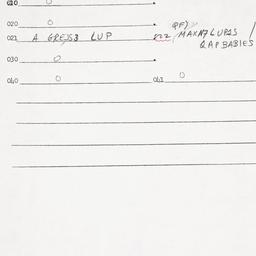 020 0
020 0 QF)
021 A GRESS3 LUP 222 MAXM7 LUPQS
QAPBABIES
030 0
040 0 043 0